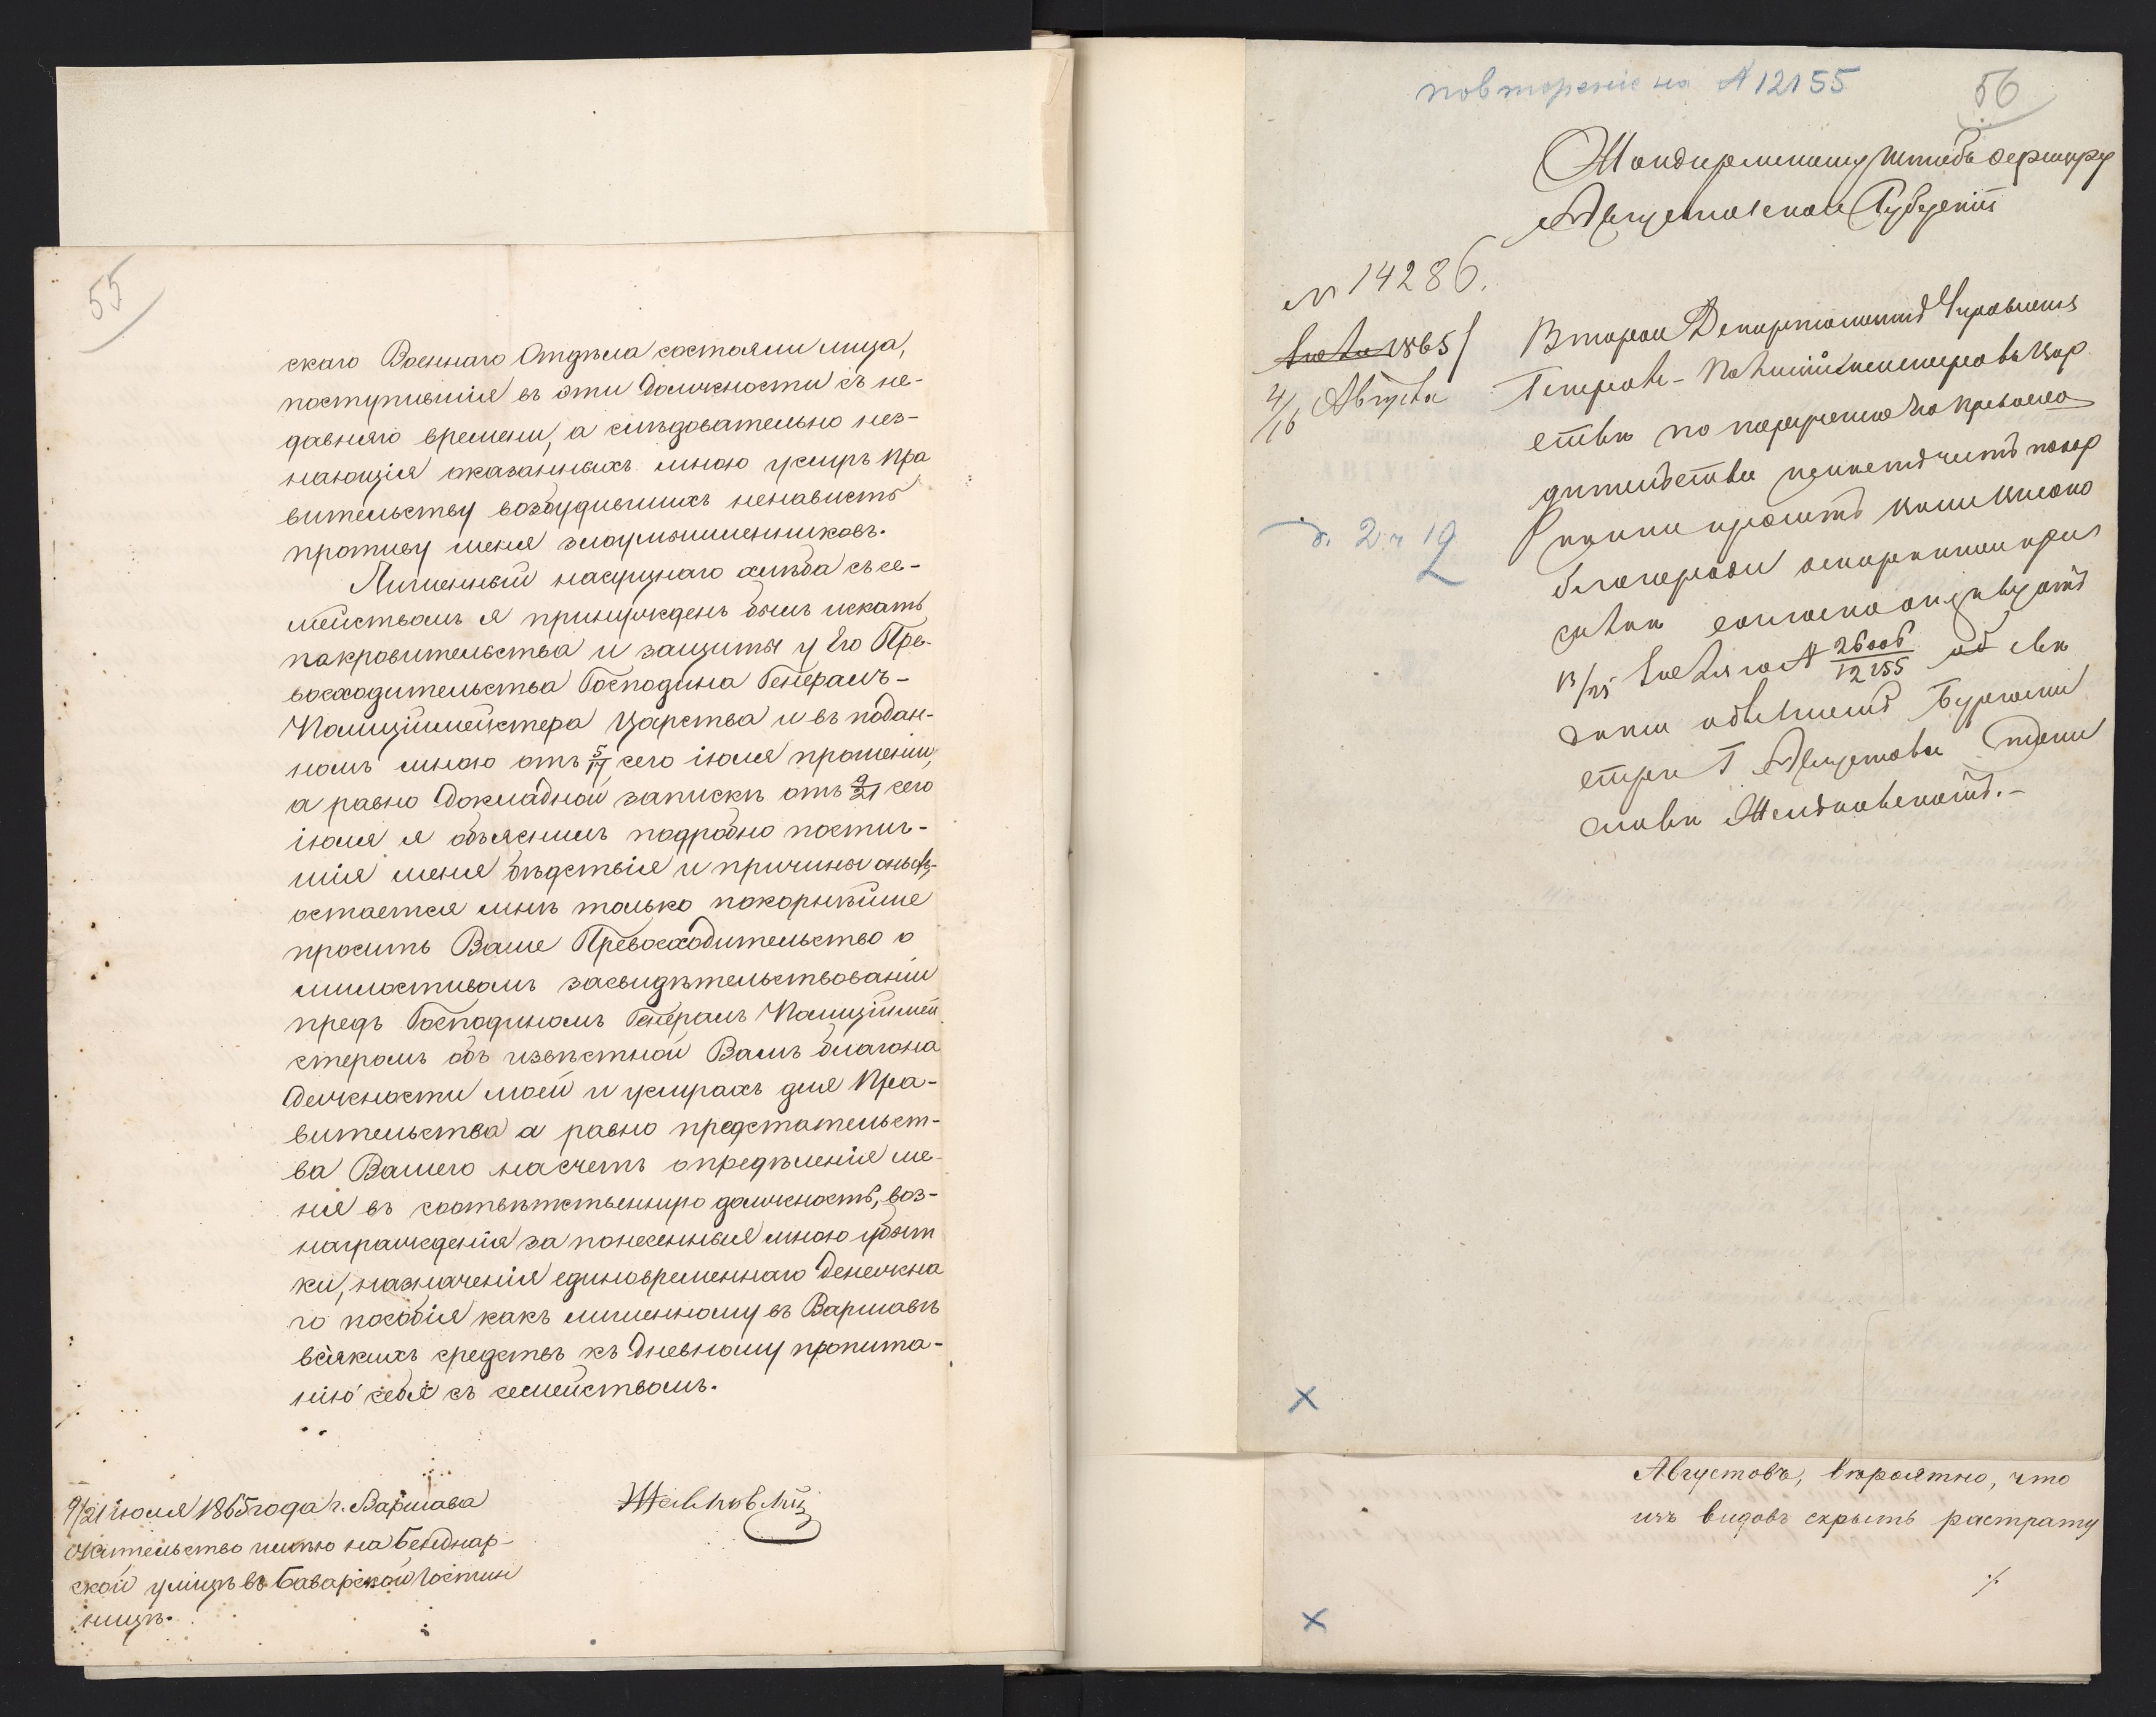 55
скаго Военнаго Отдѣла состояли лица,
поступившія въ эти должности съ не-
давняго времени, а слѣдовательно нез-
нающія оказанныхъ мною услугъ Пра
вительству возбудившихъ ненависть
противу меня злоумышленниковъ.
Лишенный насущнаго хлѣба съ се-
мействомъ я принужденъ былъ искать
покровительства и защиты у Его Пре-
восходительства Господина Генералъ-
Полиціймейстера Царства и въ подан-
номъ мною отъ 5/17 сего іюля прошеніи,
а равно докладной запискѣ отъ 9/21 сего
іюля я объяснилъ подробно постиг-
шія меня бѣдствія и причины оныхъ,
остается мнѣ только покорнѣйше
просить Ваше Превосходительство о
милостивомъ засвидѣтельствованіи
предъ Господиномъ Генералъ Полиціймей
стеромъ объ извѣстной Вамъ благона
дежности моей и услугахъ для Пра-
вительства а равно предстательст-
ва Вашего насчетъ опредѣленія ме-
ня въ соотвѣтственную должность, воз-
награжденія за понесенныя мною убыт
ки, назначенія единовременнаго денежна
го пособія какъ лишенному въ Варшавѣ
всякихъ средствъ къ дневному пропита-
нію себя съ семействомъ.
9/21 іюля 1865 года г. Варшава
жительство имѣю на Беднар-
ской улицѣ въ Баварской гостин
ницѣ.
повтореніе на № 12155
56
Жандармскому Штабъ Офицеру
Августовской Губерніи
№ 14286.
1865
4/16 Августа
Второй Департаментъ Управленія
Генералъ-Полиціймейстера въ Цар
ствѣ по порученію Его Превосхо
дительства имѣетъ честь покор
просить Ваше Высоко
благородіе ускорить
согласно отзыву отъ
13/25 № 26006/12155 объ
Бурго
г. Августова Стани
слава Желковскомъ.-
д. 2 ч 19
2
Августовъ, вѣроятно, что
изъ видовъ скрыть растрату